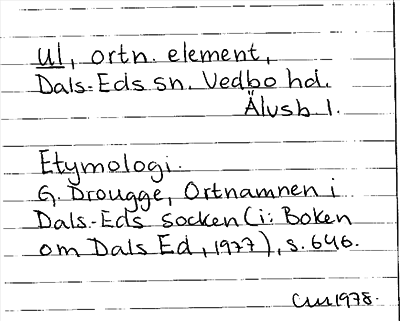 Ul, ortn. element,
Dals-Eds sn. Vedbo hd.
Älvsb. l.
Etymologi.
G. Drougge, Ortnamnen i
Dals-Eds socken (i: Boken
om Dals Ed, 1977), s. 646.
1978.